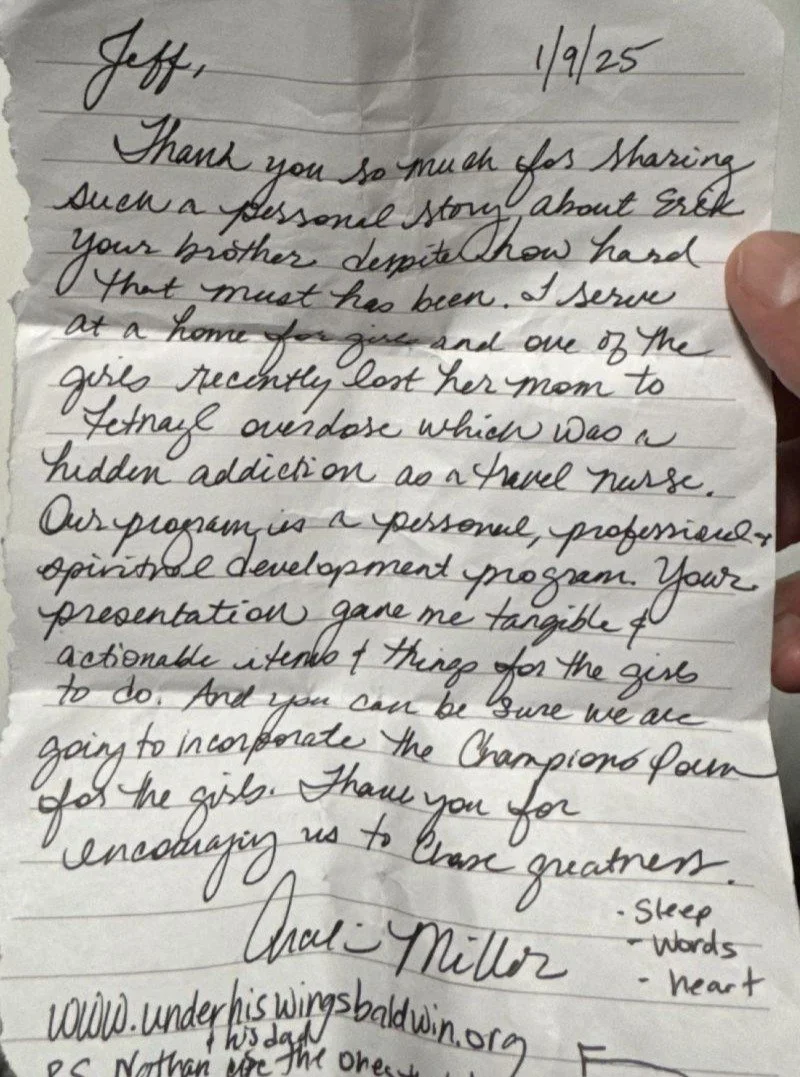 Jeff, 1/9/25
Thank you so much for sharing
such a personal story about Erik
your brother despite how hard
that must has been. I serve
at a home for girls and one of the
girls recently lost her mom to
Fetnayl overdose which was a
hidden addiction as a travel nurse.
Our program is a personal, professional +
spiritual development program. Your
presentation gave me tangible &
actionable items & things for the girls
to do. And you can be sure we are
going to incorporate the Champions
for the girls. Thank you for
encouraging us to Chase greatness.
Miller
- Sleep
- Words
- heart
www.underhiswingsbaldwin.org
& his dad
PS. Nathan are the ones